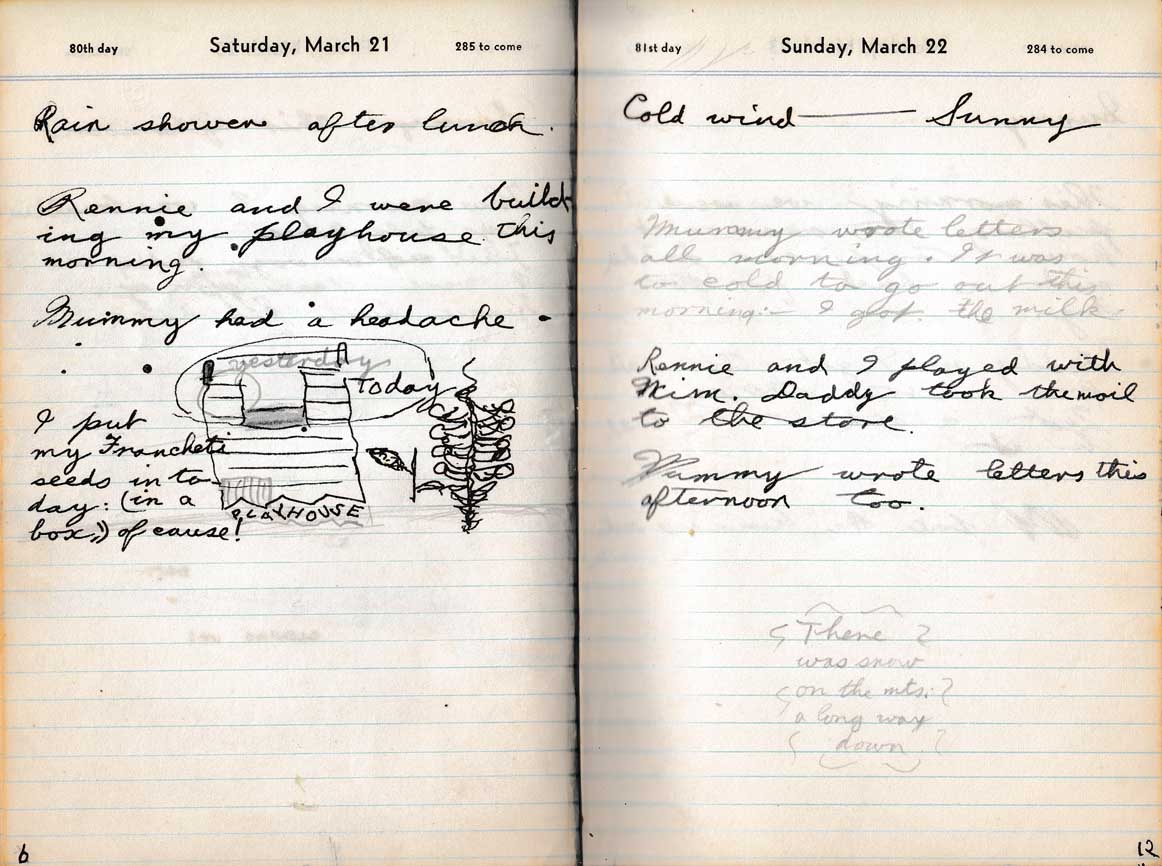 80th day
Saturday, March 21
285 to come
Rain shower after lunch.
Rennie and I were build-
ing my playhouse this
morning.
Mummy had a headache.
yesterday
Today
I put
my Francheti
seeds in to-
day: (in a
box,) of cause!
PLAYHOUSE
6
81st day
Sunday, March 22
284 to come
Cold wind — Sunny
Mummy wrote letters
all morning. It was
to cold to go out this
morning:- I got the milk.
Rennie and I played with
Mim. Daddy took the mail
to the store.
Mummy wrote letters this
afternoon too.
There
was snow
on the mts.
a long way
down.
12